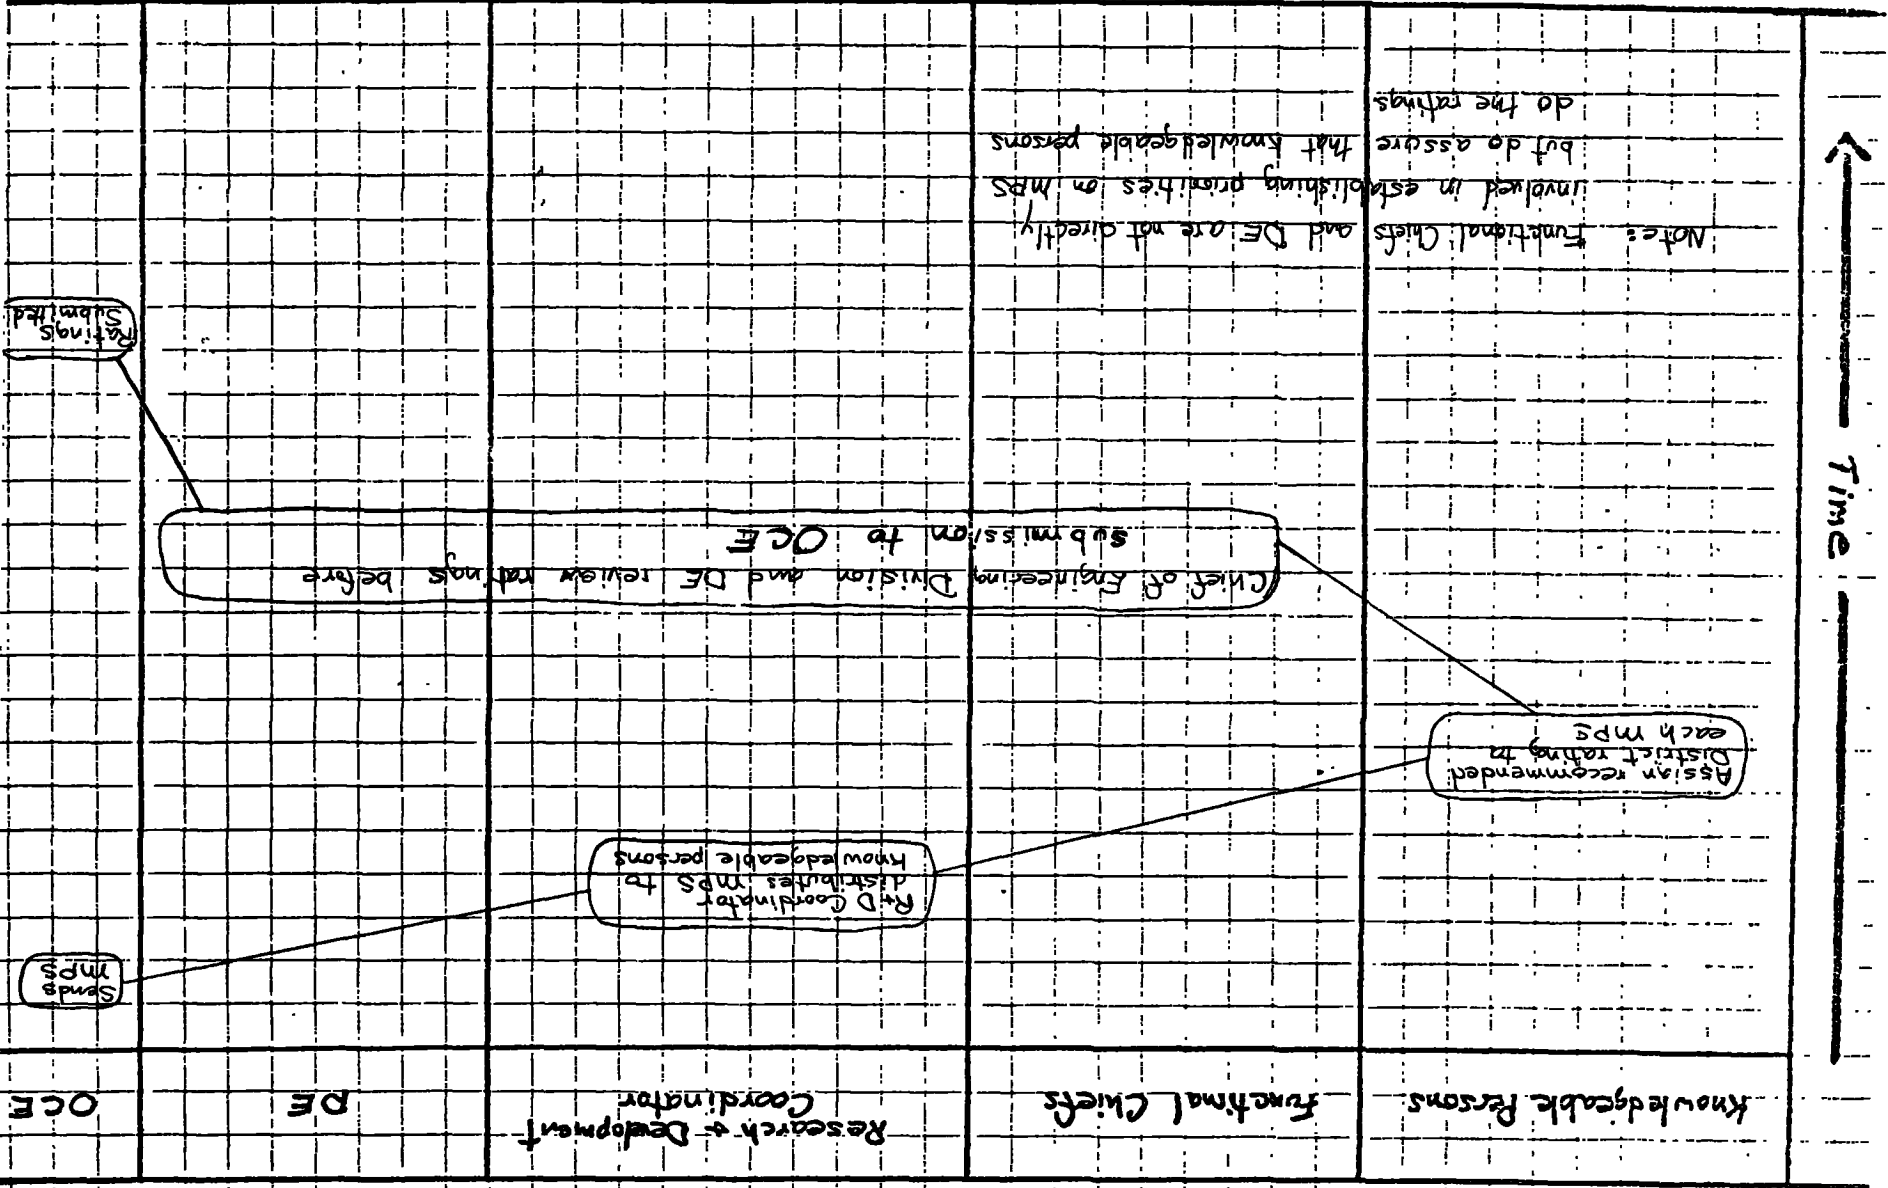 Knowledgeable Persons
Functional Chiefs
Research & Development
Coordinator
DE
OCE
Time
Sends
MPS
R+D Coordinator
distributes MPS to
Knowledgeable persons
Assign recommended
District rating to
each MPS
Chief of Engineering Division and DE review ratings before
submission to OCE
Ratings
Submitted
Note: Functional Chiefs and DE are not directly
involved in establishing priorities on MPS
but do assure that knowledgeable persons
do the ratings